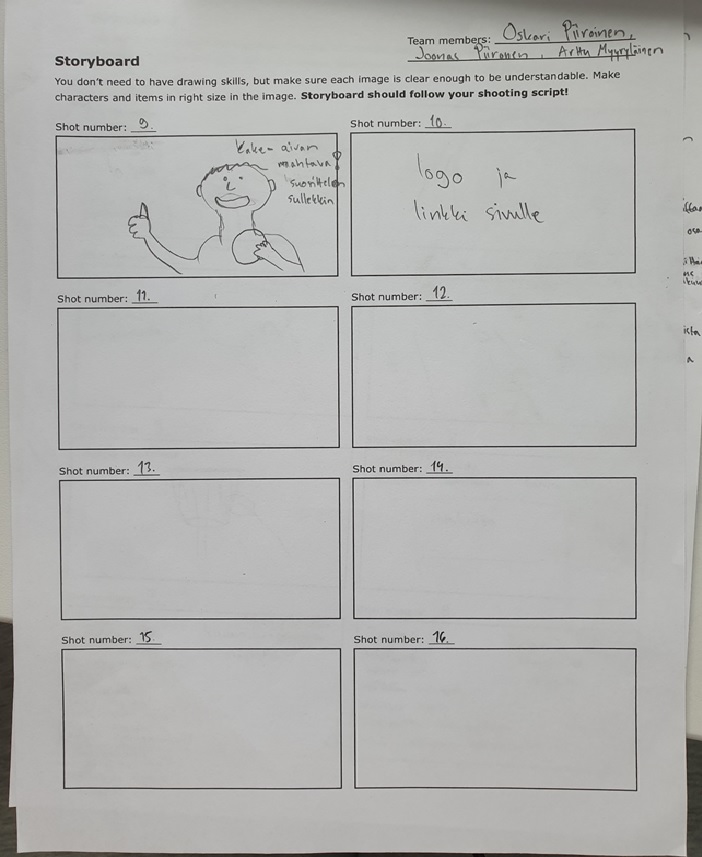 Team members: Oskari Piirainen,
Joonas Piironen, Arttu Myyryläinen
Storyboard
You don't need to have drawing skills, but make sure each image is clear enough to be understandable. Make
characters and items in right size in the image. Storyboard should follow your shooting script!
Shot number: 9.
Shot number: 10.
aivan
mahtava!
suosittelen
sullekkin
logo ja
linkki sivulle
Shot number: 11.
Shot number: 12.
Shot number: 13.
Shot number: 14.
Shot number: 15
Shot number: 16.